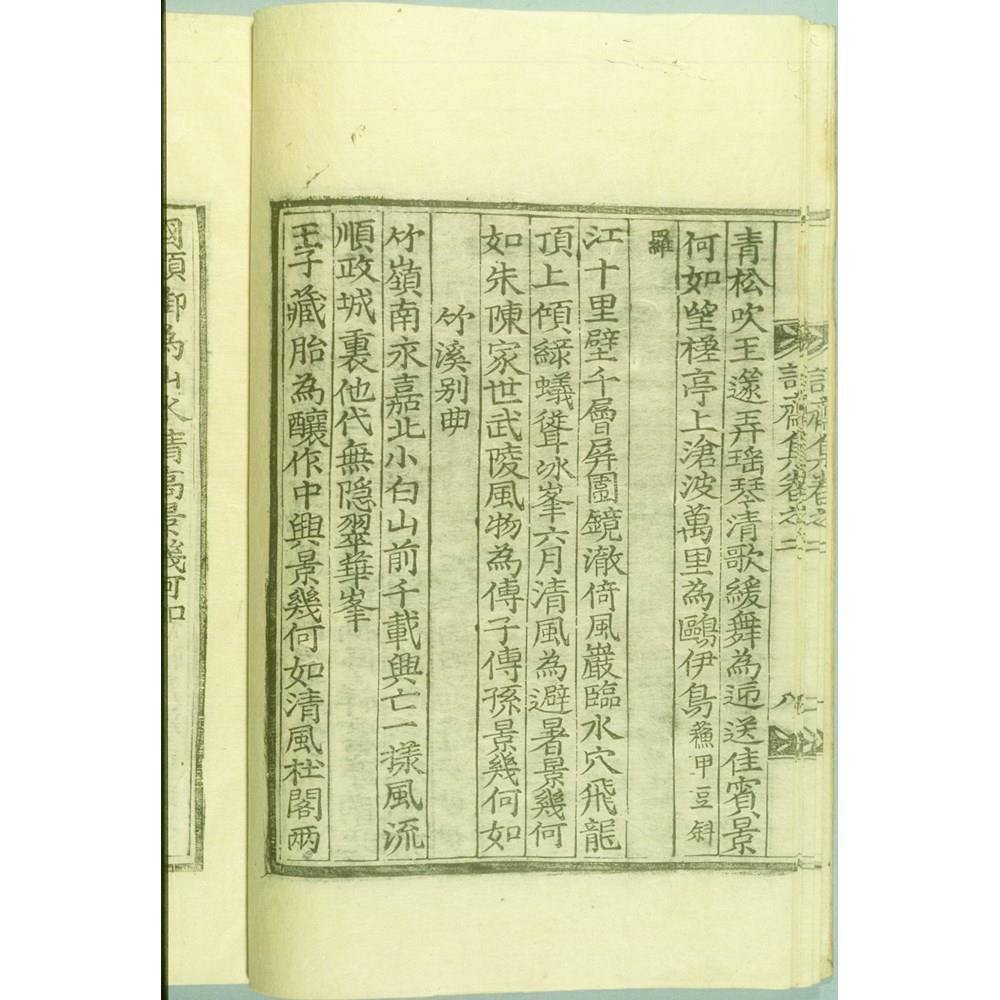 謹齋集卷之二
青松吹王篴弄瑤琴清歌緩舞為迎送佳賓景
何如望槎亭上滄波萬里為鷗伊鳥蘓甲豆斜
羅
江十里壁千層屏圍鏡澈倚風巖臨水穴飛龍
頂上傾綠蟻聳氷峯六月清風為避暑景幾何
如朱陳家世武陵風物為傳子傳孫景幾何如
竹溪別曲
竹嶺南永嘉北小白山前千載興亡一樣風流
順政城裏他代無隐翠華峯
王子藏胎為釀作中興景幾何如清風杜閣兩
國頭御為山水清高景幾何如